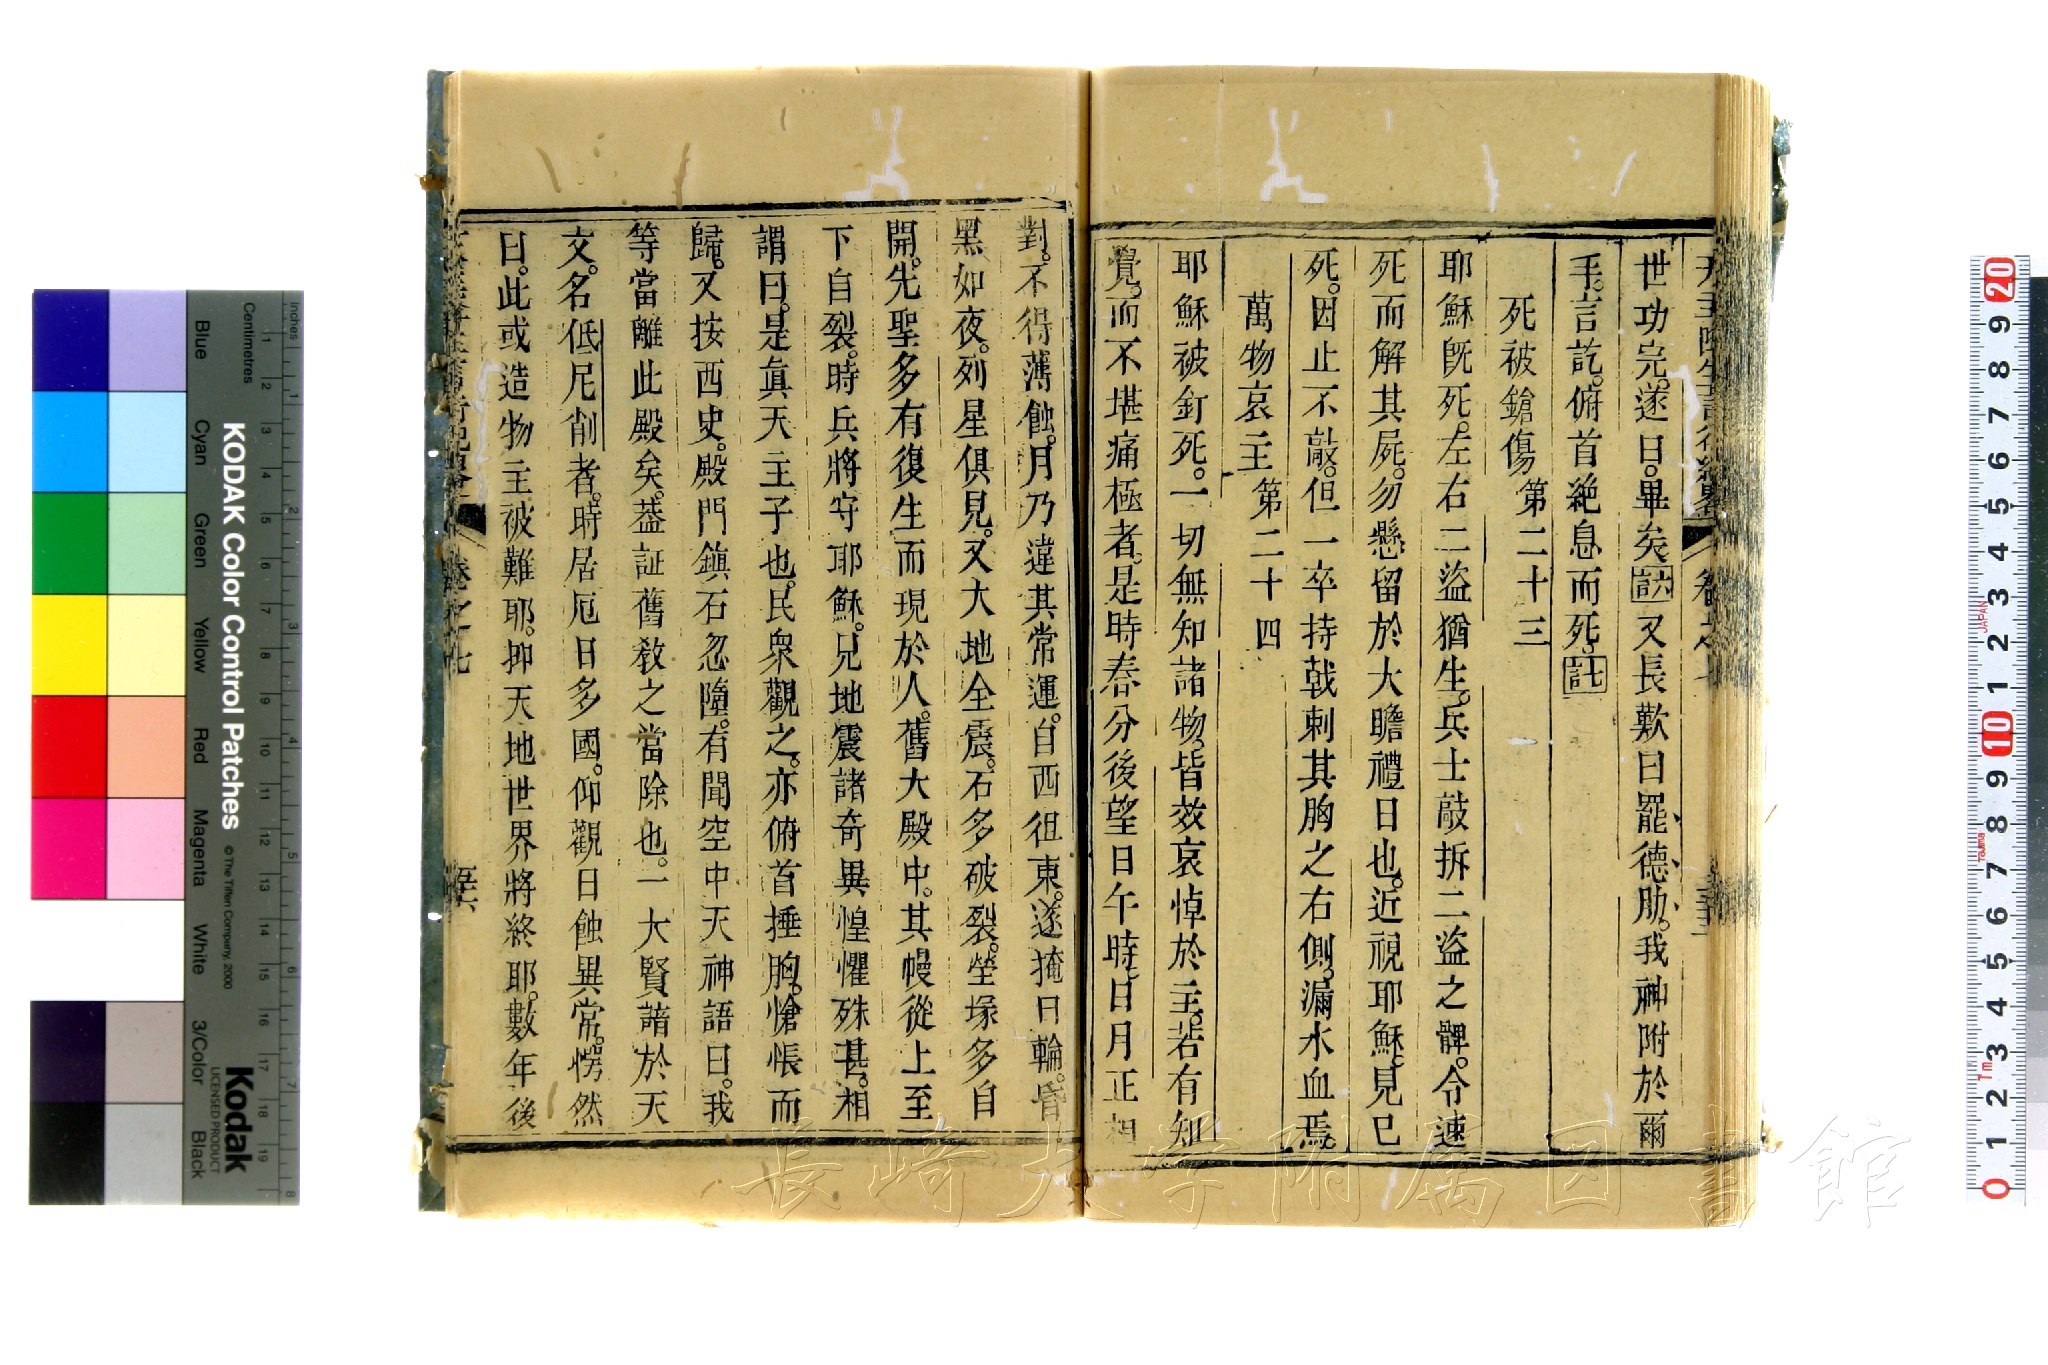 世功完。遂曰。畢矣。註六又長歎曰罷德肋。我神附於爾
手。言訖。俯首絶息而死。註七
死被鎗傷 第二十三
耶穌旣死。左右二盜猶生。兵士敲拆二盜之髀。令速
死而解其屍。勿懸留於大瞻禮日也。近視耶穌。見已
死。因止不敲。但一卒持戟刺其胸之右側。漏水血焉。
萬物哀主 第二十四
耶穌被釘死。一切無知諸物。皆效哀悼於主。若有知
覺。而不堪痛極者。是時春分後望日午時。日月正相
對。不得薄蝕。月乃違其常運。自西徂東。遂掩日輪。昏
黑如夜。列星俱見。又大地全震。石多破裂。塋塚多自
開。先聖多有復生而現於人。舊大殿中。其幔從上至
下自裂。時兵將守耶穌。見地震諸奇異惶懼殊甚。相
謂曰。是眞天主子也。民衆觀之。亦俯首捶胸。愴悵而
歸。又按西史。殿門鎮石忽墮。有聞空中天神語曰。我
等當離此殿矣。葢証舊敎之當除也。一大賢諳於天
文。名低尼削者。時居厄日多國。仰觀日蝕異常。愕然
曰。此或造物主被難耶。抑天地世界將終耶。數年後
卷之七
Blue
Cyan
Green
Yellow
Red
Magenta
White
3/Color
Black
Centimetres
Inches
KODAK Color Control Patches
© The Tiffen Company, 2000
Kodak
LICENSED PRODUCT
長崎大学附属図書館
JAPAN